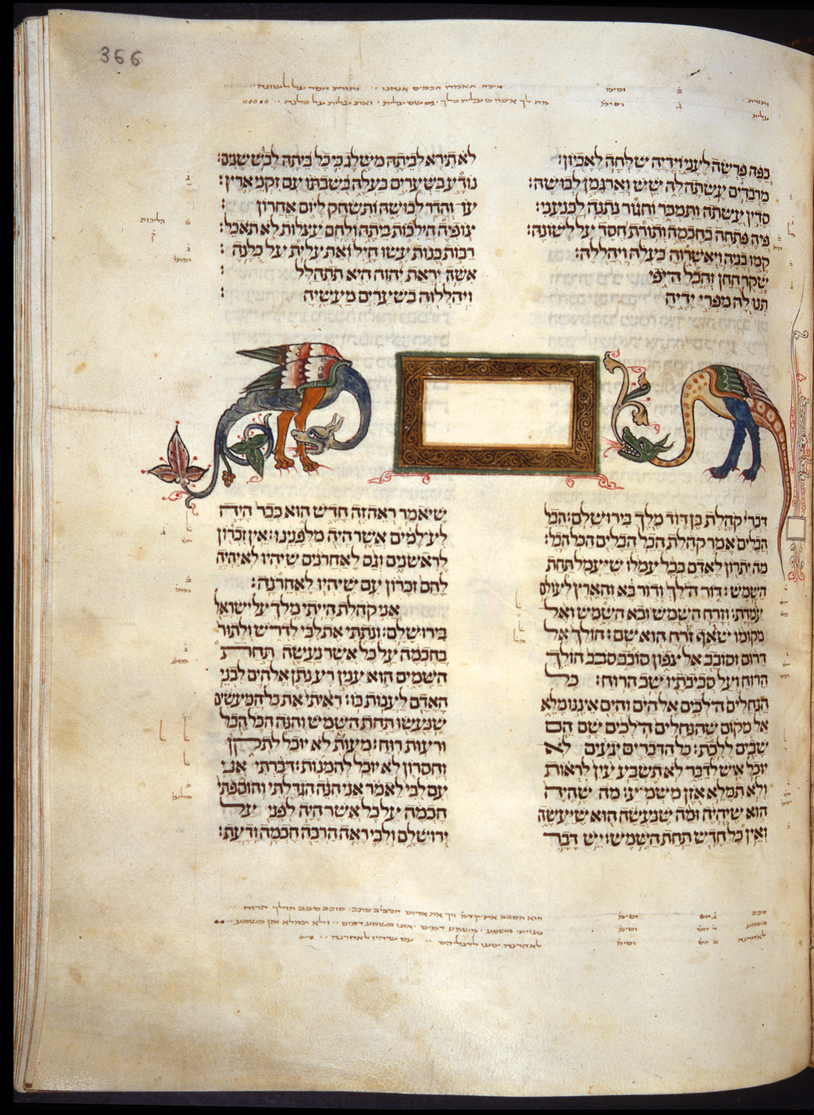 366
ותורת ב וסימ איכה תאמרו חכמים אנחנו ותורת חסד על לשונה
עלית ג וסימ ואת עלית על כלנה
כפה פרשה לעני וידיה שלחה לאביון: לא תירא לביתה משלג כי כל ביתה לבש שנים:
מרבדים עשתה לה שש וארגמן לבושה: נודע בשערים בעלה בשבתו עם זקני ארץ:
סדין עשתה ותמכר וחגור נתנה לכנעני: עז והדר לבושה ותשחק ליום אחרון:
פיה פתחה בחכמה ותורת חסד על לשונה: צופיה הילכות ביתה ולחם עצלות לא תאכל:
קמו בניה ויאשרוה בעלה ויהללה: רבות בנות עשו חיל ואת עלית על כלנה:
שקר החן והבל היפי אשה יראת יהוה היא תתהלל:
תנו לה מפרי ידיה ויהללוה בשערים מעשיה:
דברי קהלת בן דוד מלך בירושלם: הבל
הבלים אמר קהלת הבל הבלים הכל הבל:
מה יתרון לאדם בכל עמלו שיעמל תחת
השמש: דור הלך ודור בא והארץ לעולם
עמדת: וזרח השמש ובא השמש ואל
מקומו שואף זרח הוא שם: הולך אל
דרום וסובב אל צפון סובב סבב הולך
הרוח ועל סביבתיו שב הרוח: כל
הנחלים הלכים אל הים והים איננו מלא
אל מקום שהנחלים הלכים שם הם
שבים ללכת: כל הדברים יגעים לא
יוכל איש לדבר לא תשבע עין לראות
ולא תמלא אזן משמע: מה שהיה
הוא שיהיה ומה שנעשה הוא שיעשה
ואין כל חדש תחת השמש: יש דבר
שיאמר ראה זה חדש הוא כבר היה
לעלמים אשר היה מלפנינו: אין זכרון
לראשנים וגם לאחרנים שיהיו לא יהיה
להם זכרון עם שיהיו לאחרנה:
אני קהלת הייתי מלך על ישראל
בירושלם: ונתתי את לבי לדרוש ולתור
בחכמה על כל אשר נעשה תחת
השמים הוא ענין רע נתן אלהים לבני
האדם לענות בו: ראיתי את כל המעשים
שנעשו תחת השמש והנה הכל הבל
ורעות רוח: מעות לא יוכל לתקן
וחסרון לא יוכל להמנות: דברתי אני
עם לבי לאמר אני הנה הגדלתי והוספתי
חכמה על כל אשר היה לפני על
ירושלם ולבי ראה הרבה חכמה ודעת: